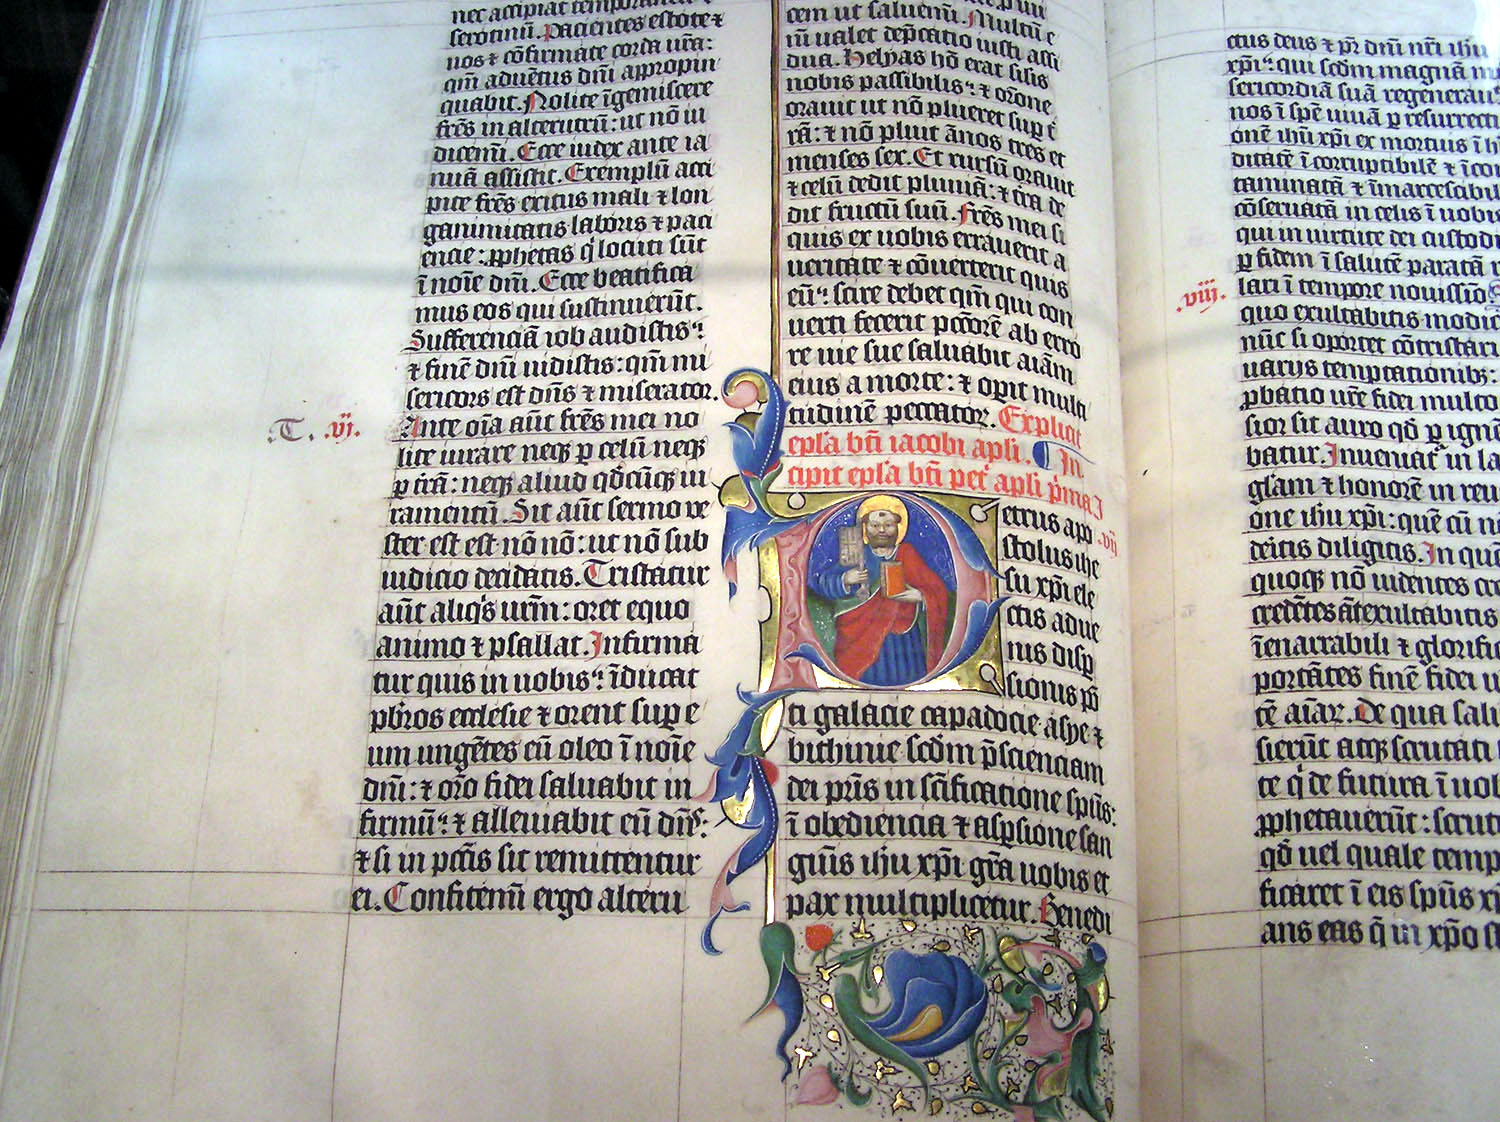 nec accipiat temporan
serotinū. Pacientes estote ⁊
nos ⁊ cōfirmate corda ur̄a:
qm̄ aduētus dn̄i appropin
quabit. Nolite īgemiscere
fr̄es in alterutrū: ut nō iu
dicem̄. Ecce iudex ante ia
nuā assistit. Exemplū acci
pite fr̄es exitus mali ⁊ lon
ganimitatis laboris ⁊ paci
encie: ꝓphetas q̄ locuti sūt
ī noīe dn̄i. Ecce beatifica
mus eos qui sustinuerūt.
Sufferenciā iob audistis:
⁊ finē dn̄i uidistis: qm̄ mi
sericors est dn̄s ⁊ miserator.
.T. .vj. Ante oīa aūt fr̄es mei no
lite iurare neqꝫ ꝑ celū neqꝫ
ꝑ tr̄ā: neqꝫ aliud qđcūqꝫ iu
ramentū. Sit aūt sermo ve
ster est est nō nō: ut nō sub
iudicio decidatis. Tristatur
aūt aliq̇s ur̄m: oret equo
animo ⁊ psallat. Infirma
tur quis in uobis: īducat
pb̄ros ecclesie ⁊ orent suꝑ e
um ungētes eū oleo ī noīe
dn̄i: ⁊ or̄o fidei saluabit in
firmū: ⁊ alleuiabit eū dn̄s:
⁊ si in pcc̄is sit remittentur
ei. Confitemī ergo alteru
cem ut saluem̄i. Multū e
nī ualet dep̄catio iusti assi
dua. Helyas hō erat silis
nobis passibilis: ⁊ or̄one
orauit ut nō plueret suꝑ t̄
rā: ⁊ nō pluit ānos tres et
menses sex. Et rursū orauit
⁊ celū dedit pluuiā: ⁊ tr̄a de
dit fructū suū. Fr̄es mei si
quis ex uobis errauerit a
ueritate ⁊ cōuerterit quis
eū: scire debet qm̄ qui con
uerti fecerit pcc̄orē ab erro
re uie sue saluabit aīam
eius a morte: ⁊ oꝑit multi
tudinē peccator. Explicit
epl̄a bt̄i iacobi apl̄i. In
cipit epl̄a bt̄i pet̓ apl̄i p̄ma J
etrus apo .vij
stolus ihe
su xp̄i ele
ctis adue
nis disꝑ
sionis po̅
ti galacie capadocie asye ⁊
bithinie scđm p̄scienciam
dei pr̄is in sc̄ificatione sp̄us:
ī obediencia ⁊ aspsione san
guīs ih̄u xp̄i gr̄a uobis et
pax multiplicetur. Benedi
ctus deus ⁊ pr̄ dn̄i nr̄i ih̄u
xp̄i: qui scđm magnā
sericordiā suā regenerau
nos ī spē uiuā ꝑ resurrecti
onē ih̄u xp̄i ex mortuis ī h
ditatē ī corruptibilē ⁊ īcon
taminatā ⁊ īmarcescibil
cōseruatā in celis ī uobis
qui in uirtute dei custodi
ꝑ fidem ī salutē paratā r
.viij. lari ī tempore nouissīo
quo exultabitis modic
nūc si oportet cōtristari
uarijs temptationibꝫ:
ꝓbatio ur̄e fidei multo
sior sit auro qđ ꝑ ignē
batur. Inueniat in la
gl̄am ⁊ honorē in reu
one ih̄u xp̄i: quē cū n
deitis diligitis. In quē
quoqꝫ nō uidentes cre
credētes āt exultabitis
īenarrabili ⁊ glorific
portātes finē fidei u
tē aīaꝝ. De qua salu
sierūt atqꝫ scrutati
te q̄ de futura ī uob
ꝓphetauerūt: scrut
qđ uel quale temp
ficaret ī eis sp̄us xp̄
ans eas q̄ in xp̄o